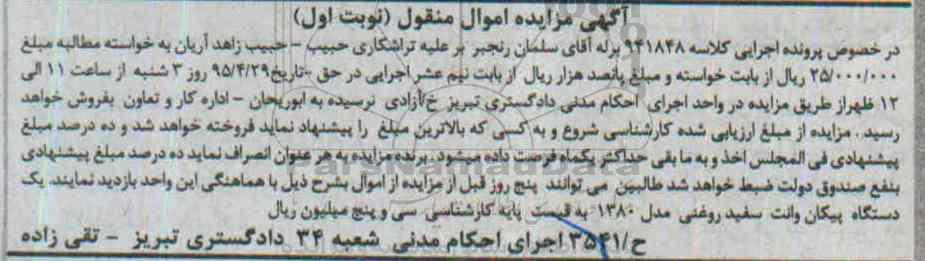 آگهی مزایده اموال منقول (نوبت اول)
در خصوص پرونده اجرایی کلاسه ۹۴۱۸۴۸ برله آقای سلمان رنجبر بر علیه تراشکاری حبیب - حبیب زاهد آریان به خواسته مطالبه مبلغ
۲۵/۰۰۰/۰۰۰ ریال از بابت خواسته و مبلغ پانصد هزار ریال از بابت نیم عشر اجرایی در حق -تاریخ ۹۵/۴/۲۹ روز ۳ شنبه از ساعت ۱۱ الی
۱۲ ظهراز طریق مزایده در واحد اجرای احکام مدنی دادگستری تبریز خ/آزادی نرسیده به ابوریحان - اداره کار و تعاون بفروش خواهد
رسید. مزایده از مبلغ ارزیابی شده کارشناسی شروع و به کسی که بالاترین مبلغ را پیشنهاد نماید فروخته خواهد شد و ده درصد مبلغ
پیشنهادی فی المجلس اخذ و به ما بقی حداکثر یکماه فرصت داده میشود. برنده مزایده به هر عنوان انصراف نماید ده درصد مبلغ پیشنهادی
بنفع صندوق دولت ضبط خواهد شد طالبین می توانند پنج روز قبل از مزایده از اموال بشرح ذیل با هماهنگی این واحد بازدید نمایند. یک
دستگاه پیکان وانت سفید روغنی مدل ۱۳۸۰ به قیمت پایه کارشناسی سی و پنج میلیون ریال
ح/۳۵۴۱ اجرای احکام مدنی شعبه ۳۴ دادگستری تبریز - تقی زاده
ParsNamadData